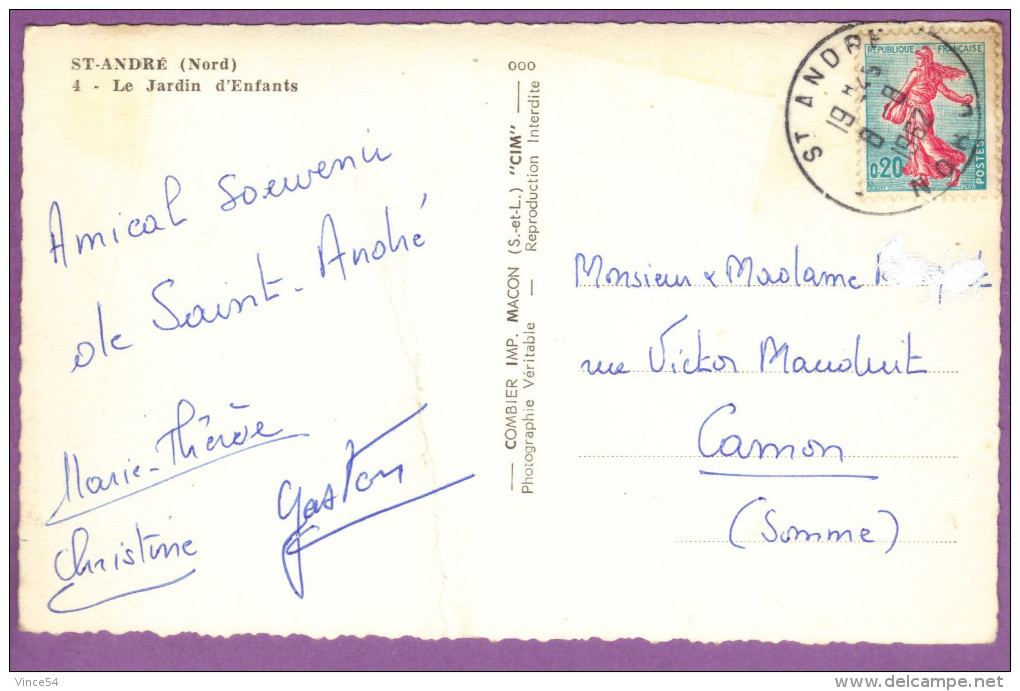 ST-ANDRÉ (Nord)
4 - Le Jardin d'Enfants
Amical Souvenir
de Saint-André
Marie-Thérèse
Christine
Gaston
COMBIER IMP. MACON (S.-et-L.) "CIM"
Photographie Véritable — Reproduction Interdite
ooo
ST ANDRE
NORD
19 H45
8 - 8
1962
REPUBLIQUE FRANÇAISE
0,20
POSTES
Monsieur & Madame
rue Victor Mauduit
Camon
(Somme)
Vince54
http://www.delcampe.net